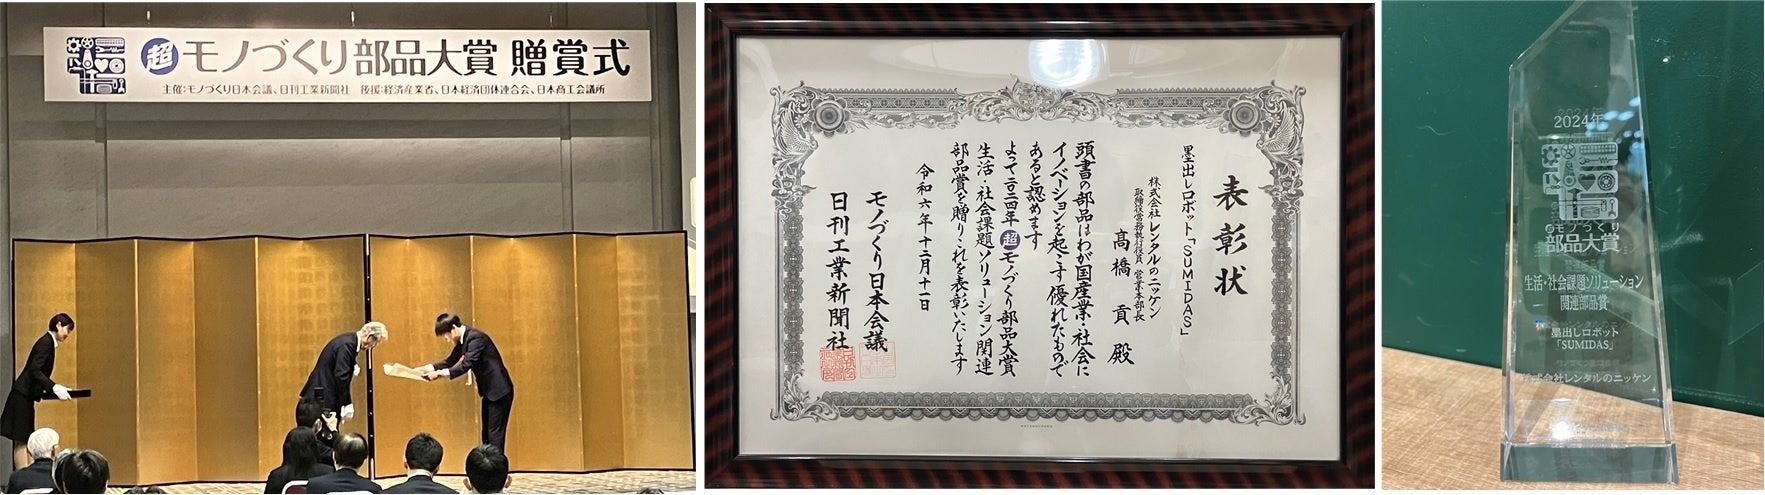 超モノづくり部品大賞 贈賞式
主催:モノづくり日本会議、日刊工業新聞社 後援:経済産業省、日本経済団体連合会、日本商工会議所
表彰状
墨出しロボット「SUMIDAS」
株式会社レンタルのニッケン
取締役常務執行役員 営業本部長
髙橋 貢 殿
頭書の部品はわが国産業・社会に
イノベーションを起こす優れたもので
あると認めます
よって二〇二四年超モノづくり部品大賞
生活・社会課題ソリューション関連
部品賞を贈りこれを表彰いたします
令和六年十二月十一日
モノづくり日本会議
日刊工業新聞社
2024年
超モノづくり
部品大賞
生活・社会課題ソリューション
関連部品賞
墨出しロボット
「SUMIDAS」
株式会社レンタルのニッケン